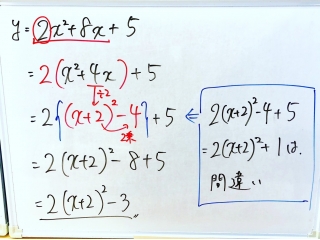 y=2x²+8x+5
=2(x²+4x)+5
÷2
=2{(x+2)²-4}+5
2乗
=2(x+2)²-8+5
=2(x+2)²-3
⇐
2(x+2)²-4+5
=2(x+2)²+1は.
間違い